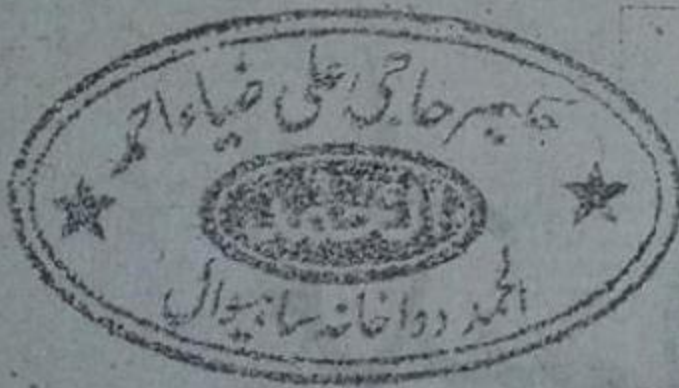 حکیم حاجی علی ضیاء احمد
الحمد دواخانہ ساہیوال